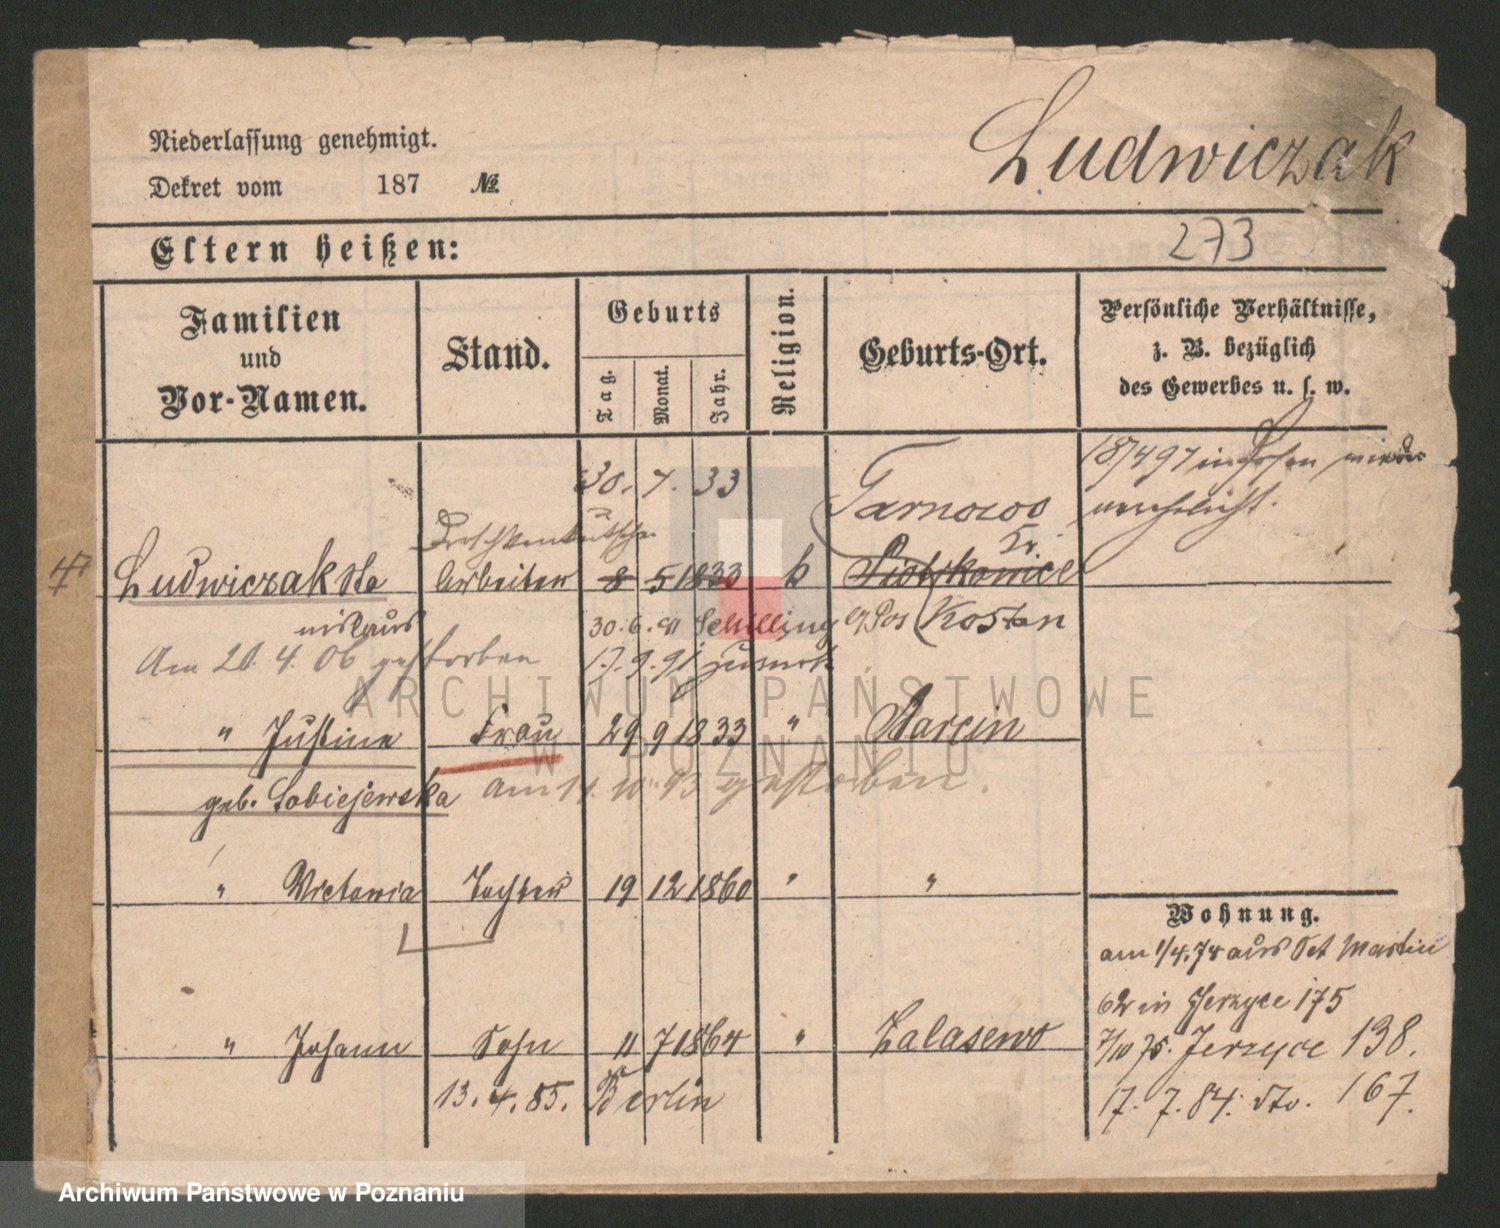 Ludwiczak
Niederlassung genehmigt.
Dekret vom 187 №
273
Eltern heißen:
Familien und Vor-Namen.
Stand.
Geburts
Tag.
Monat.
Jahr.
Religion.
Geburts-Ort.
Persönliche Verhältnisse,
z. B. bezüglich
des Gewerbes u. s. w.
30. 7. 33
Tarnowo
18/4 97 in Posen wieder
verehelicht.
Droschkenkutscher
Kr.
Ludwiczak Sta Arbeiter 8 5 1833 k Piotrkowice
nislaus 30. 6. 91 Schilling Kosten
Am 20. 4. 06 gestorben 17. 9. 91 zurück
" Justine Frau 29 9 1833 " Barcin
geb. Sobiejewska am 11. 10. 93 gestorben.
" Victoria Tochter 19 12 1860 " "
Wohnung.
am 1/4. 74 aus Sct Martin
62 in Jerzyce 175
" Johann Sohn 11 7 1864 " Zalasewo
7/10 75. Jerzyce 138.
13. 4. 85. Berlin
17. 7. 84. dto. 167.
ARCHIWUM PAŃSTWOWE
W POZNANIU
Archiwum Państwowe w Poznaniu